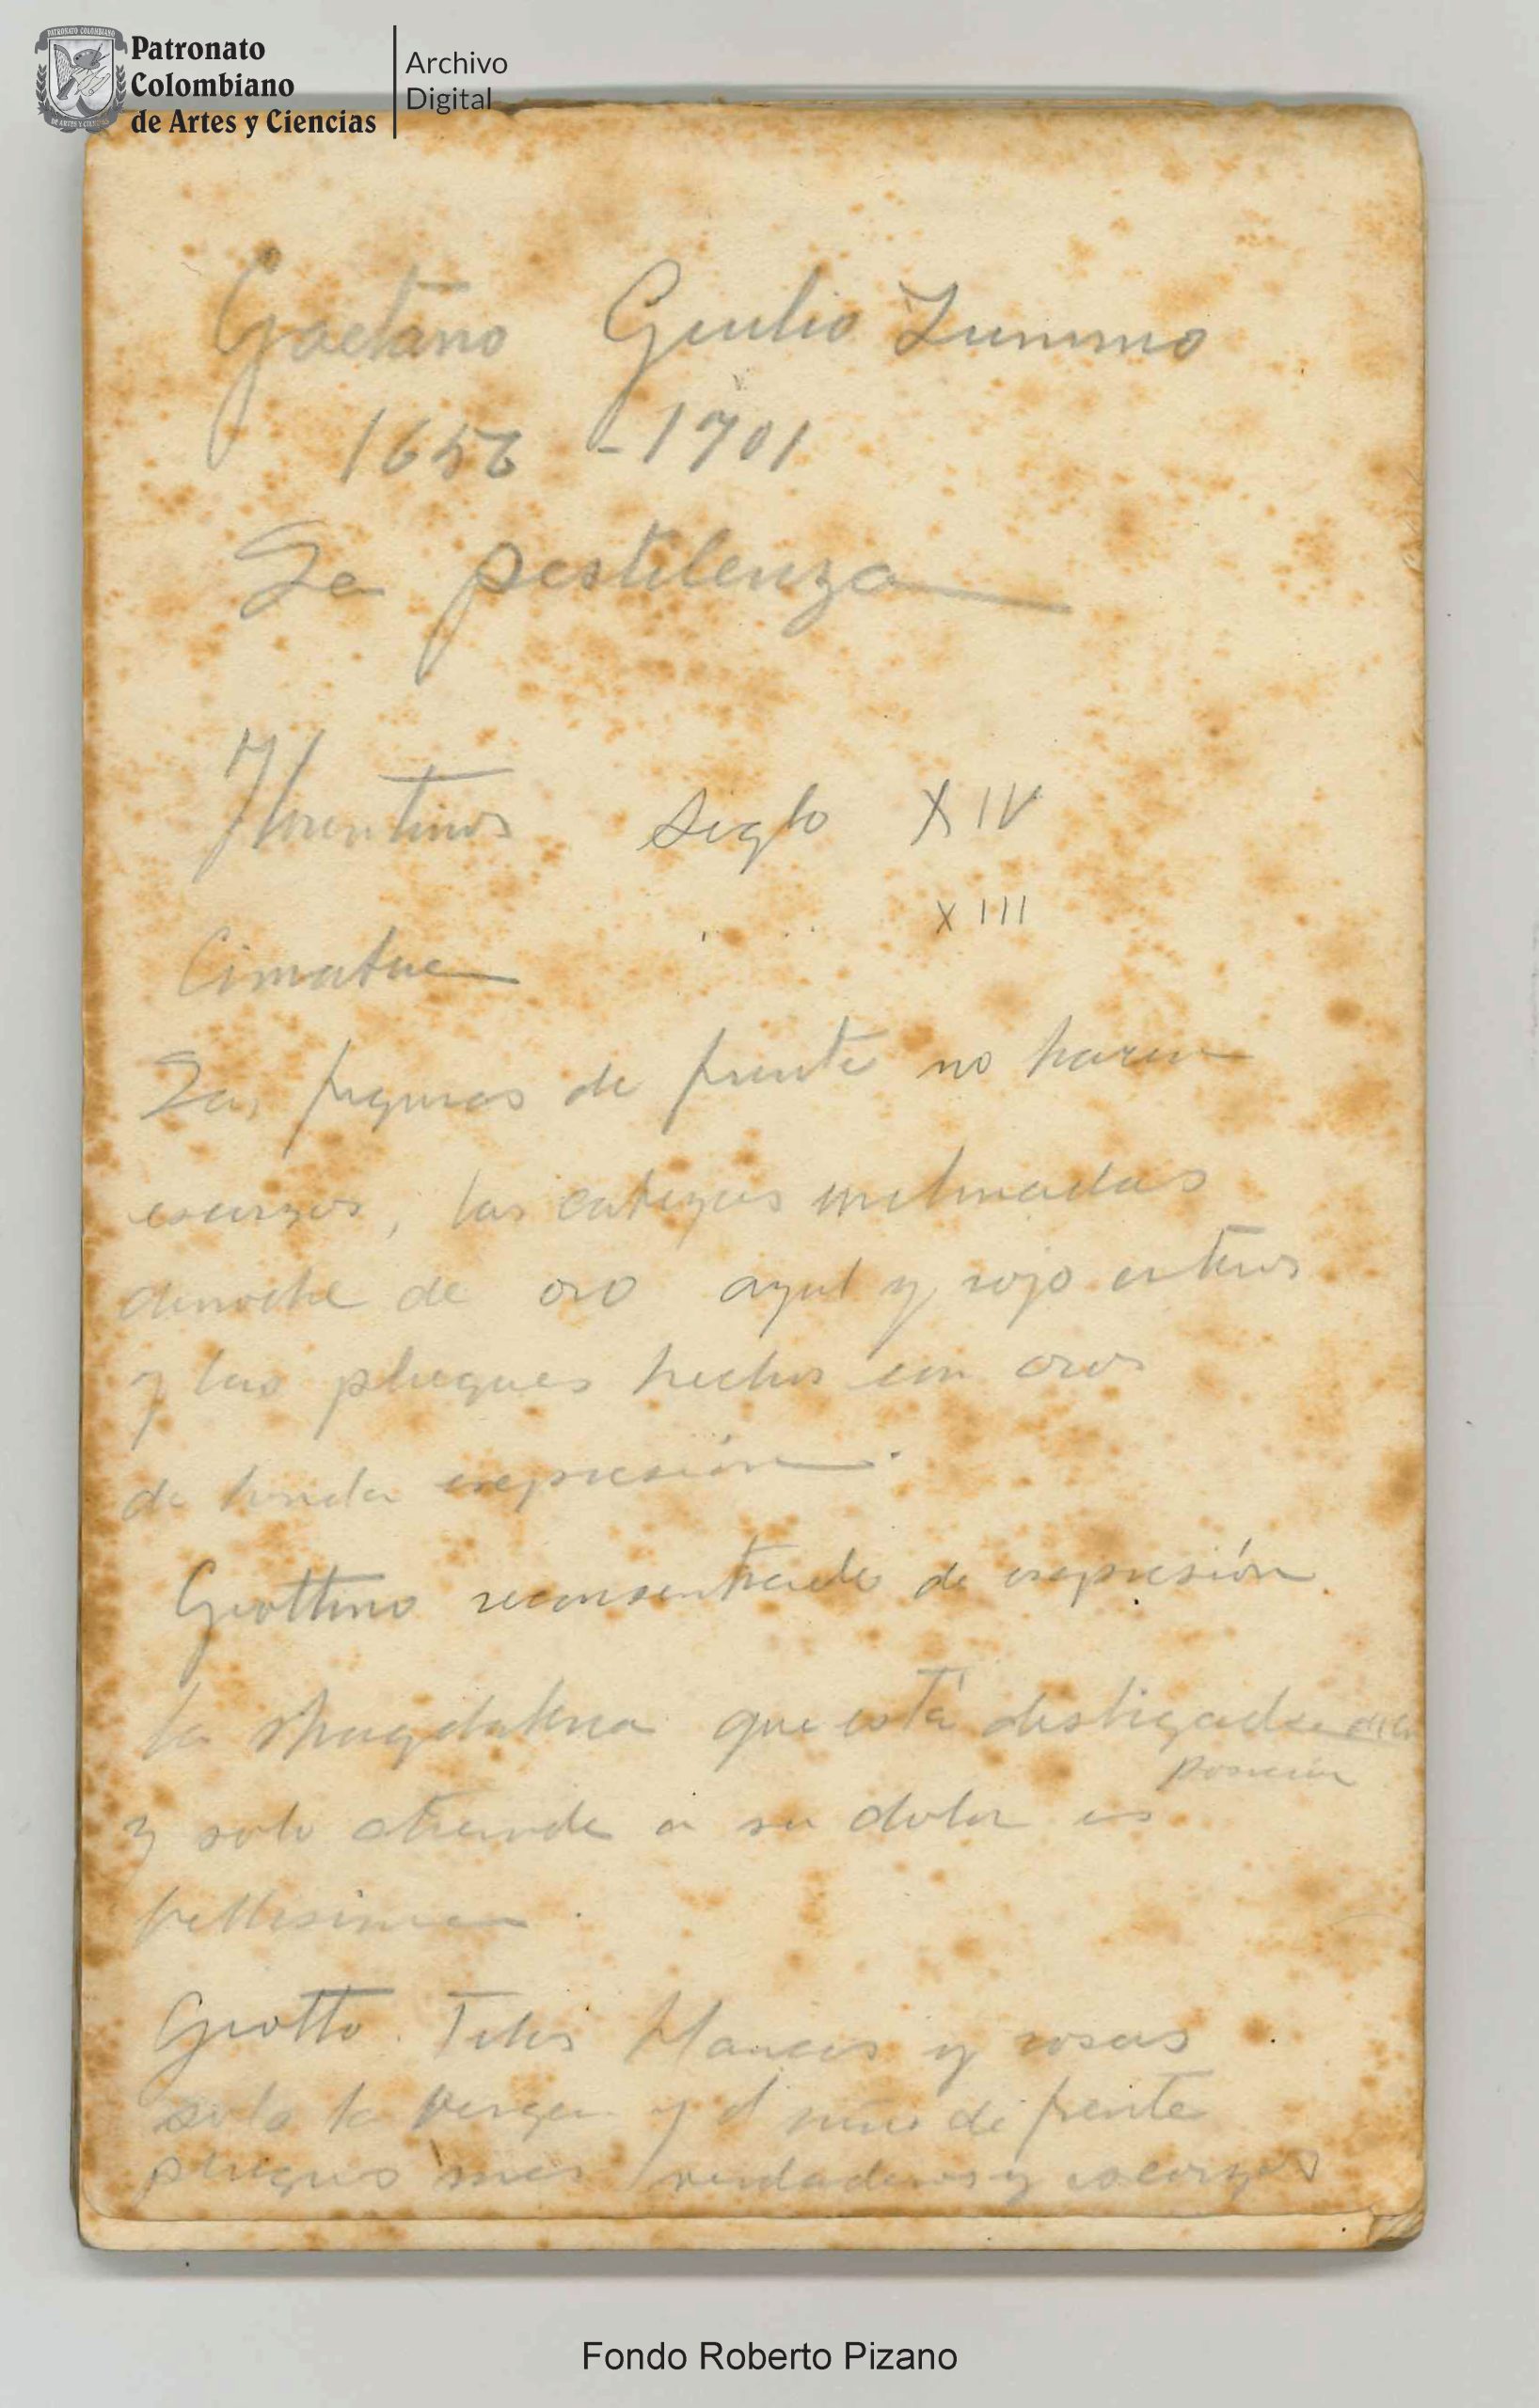 Patronato
Colombiano
de Artes y Ciencias
Archivo
Digital
Gaetano Giulio Zummo
1656 - 1701
La pestilenza
Florentinos siglo XIV
XIII
Cimabue
Las figuras de frente no hacen
escurzos, las cabezas inclinadas
derroche de oro azul y rojo enteros
y los pliegues hechos con oros
de honda expresión.
Giottino reconsentrado de expresión.
la Magdalena que está desligada de la
posición
y solo atiende a su dolor es
bellisima.
Giotto. Telas blancas y rosas
solo la Virgen y el niño de frente
pliegues mas verdaderos y escorzos
Fondo Roberto Pizano